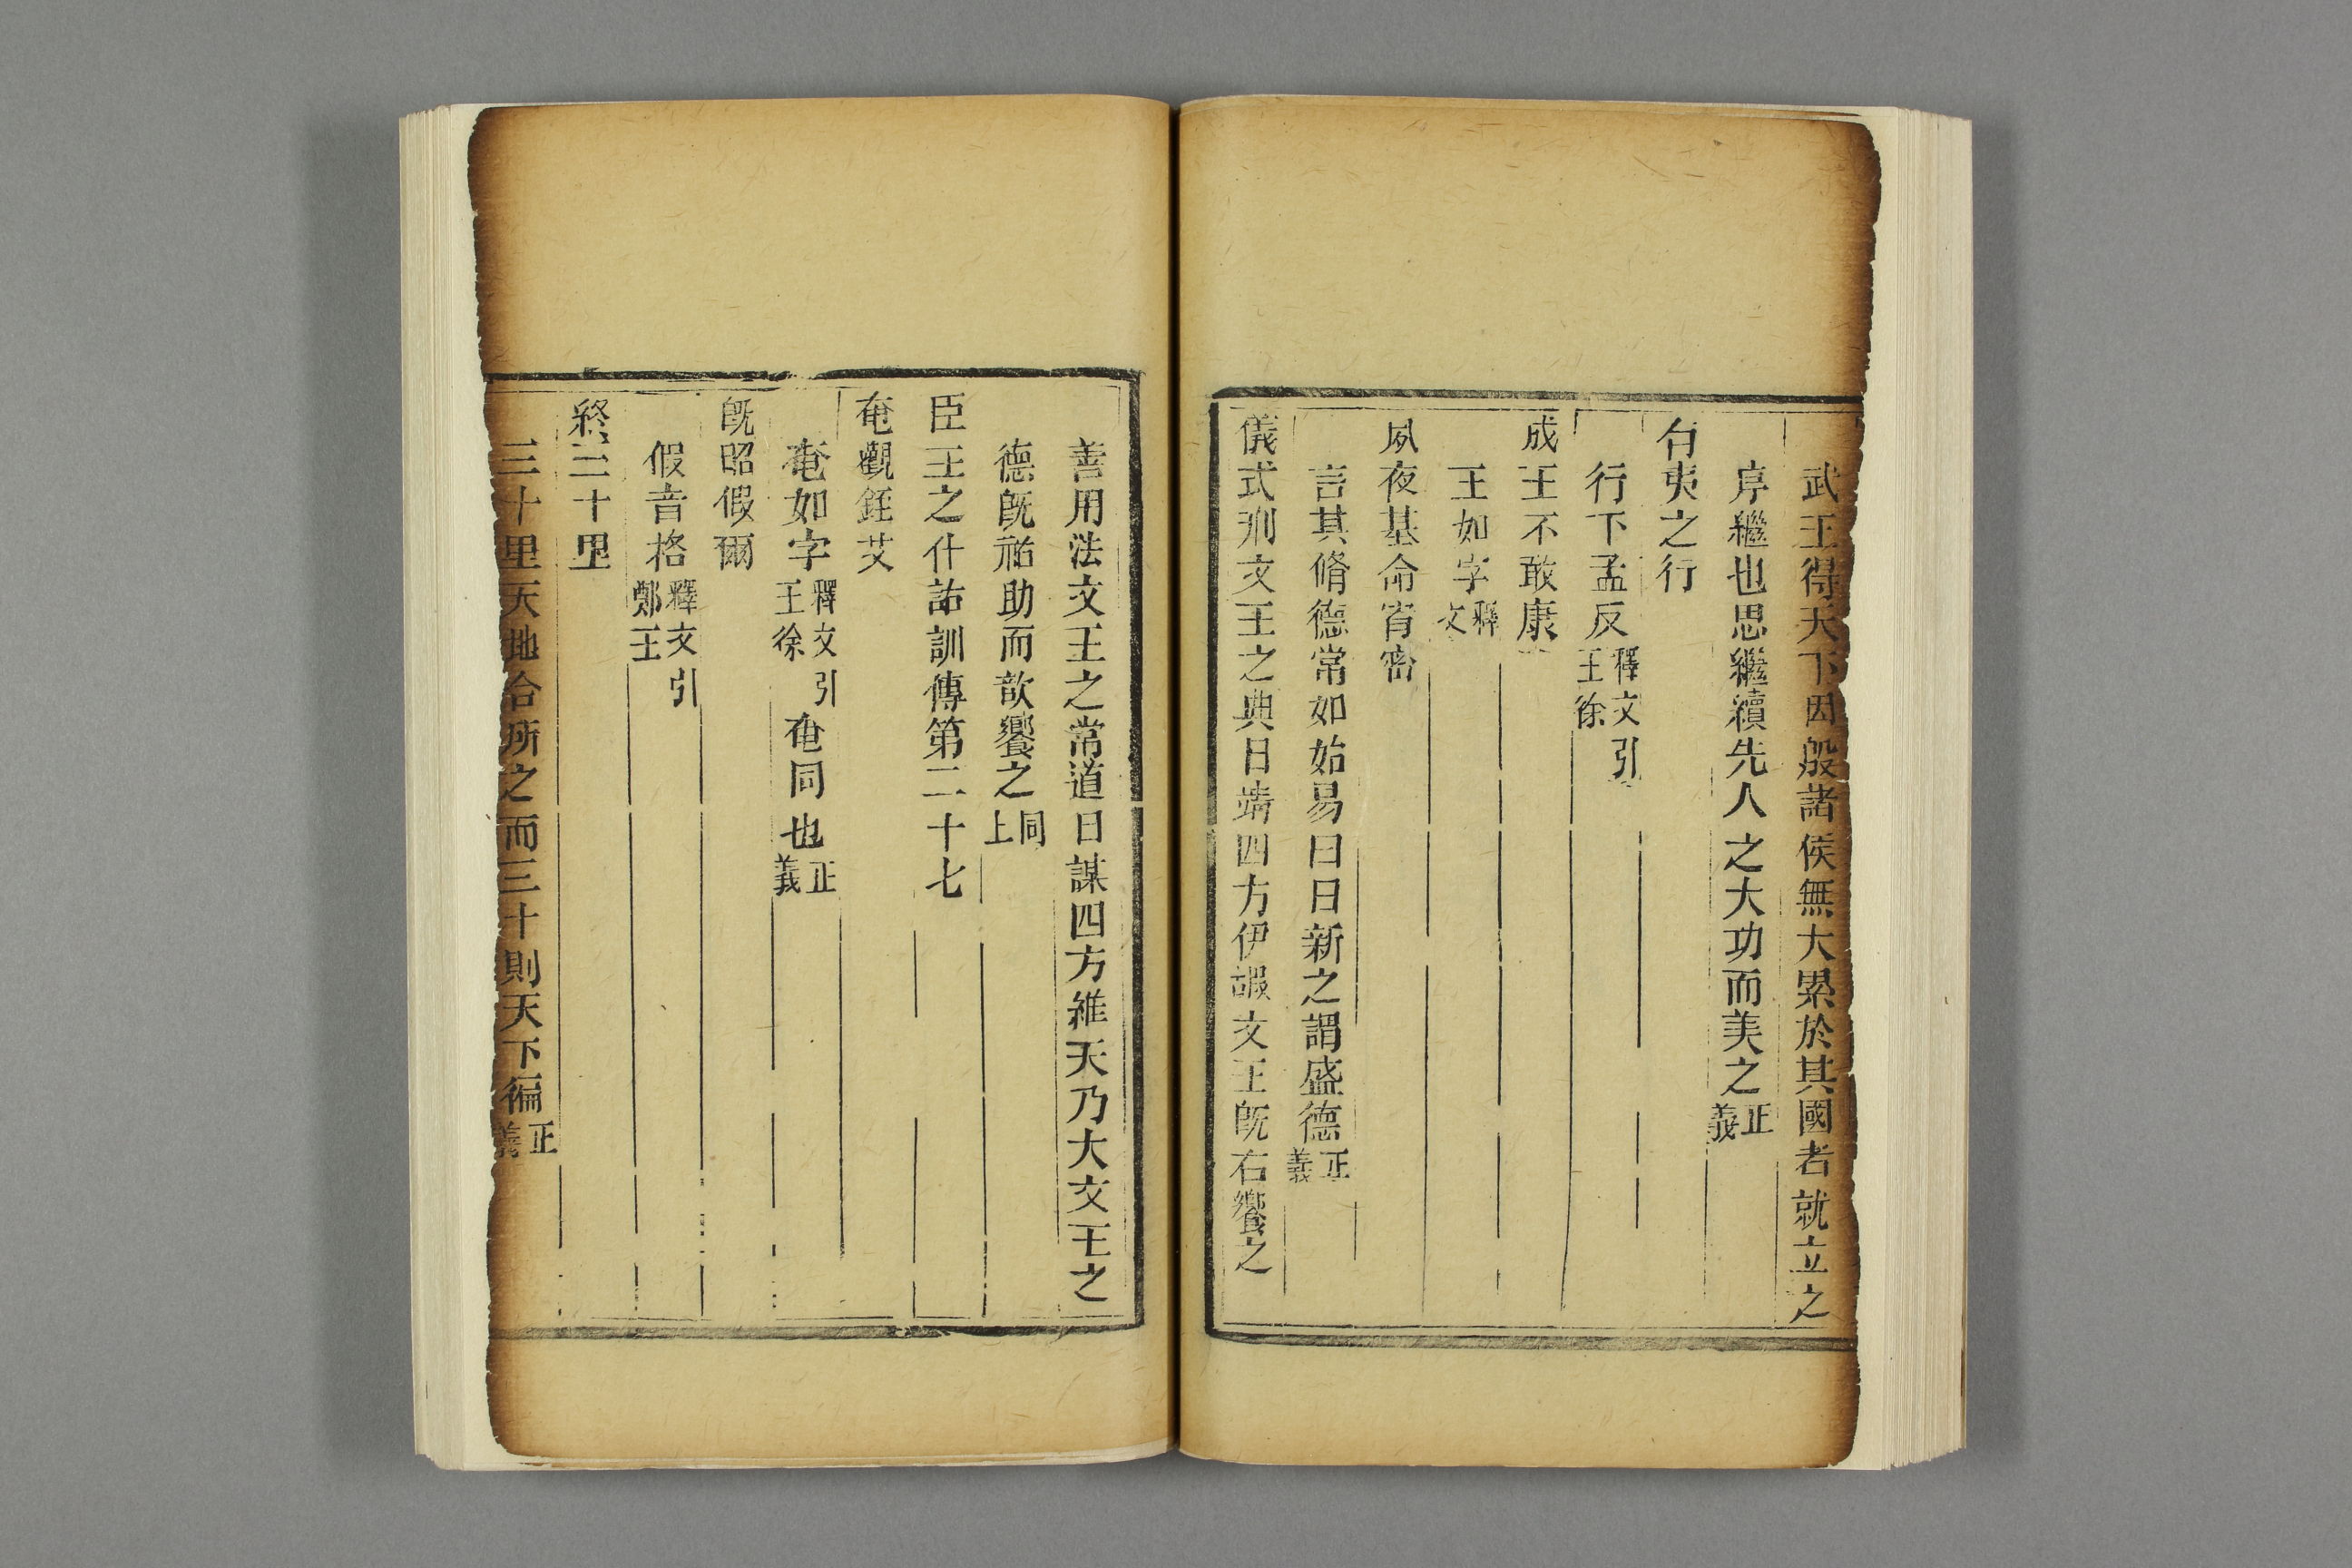 武王得天下因殷諸侯無大累於其國者就立之
序繼也思繼續先人之大功而美之正義
有夷之行
行下孟反釋文引王徐
成王不敢康
王如字釋文
夙夜基命宥密
言其脩德常如始易曰日新之謂盛德正義
儀式刑文王之典日靖四方伊嘏文王既右饗之
善用法文王之常道日謀四方維天乃大文王之
德既祐助而歆饗之同上
臣工之什詁訓傳第二十七
奄觀銍艾
奄如字釋文引王徐奄同也正義
既昭假爾
假音格釋文引鄭王
終三十里
三十里天地合所之而三十則天下徧正義